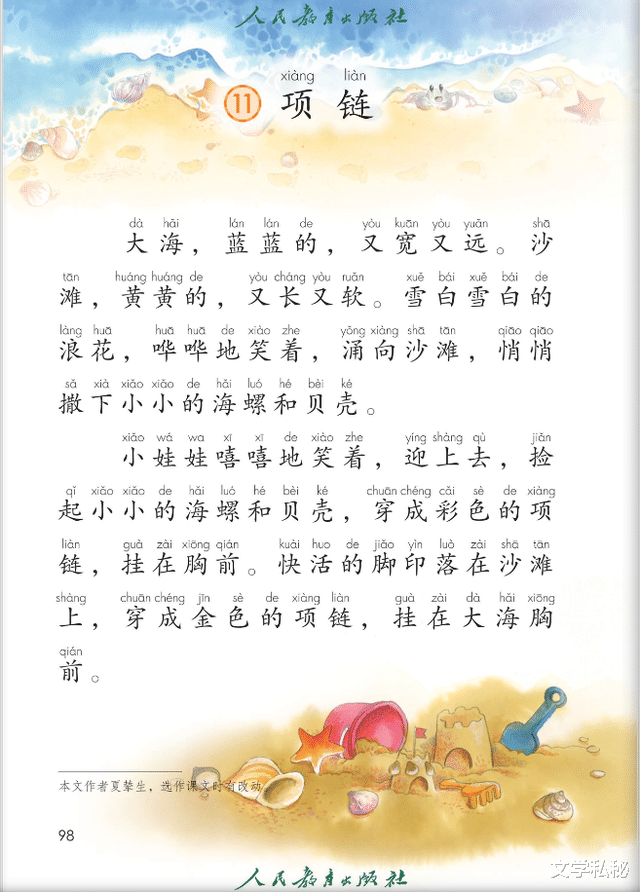 人民教育出版社
xiàng liàn
11 项链
dà hǎi lán lán de yòu kuān yòu yuǎn shā
大海，蓝蓝的，又宽又远。沙
tān huáng huáng de yòu cháng yòu ruǎn xuě bái xuě bái de
滩，黄黄的，又长又软。雪白雪白的
làng huā huā huā de xiào zhe yǒng xiàng shā tān qiāo qiāo
浪花，哗哗地笑着，涌向沙滩，悄悄
sǎ xià xiǎo xiǎo de hǎi luó hé bèi ké
撒下小小的海螺和贝壳。
xiǎo wá wa xī xī de xiào zhe yíng shàng qù jiǎn
小娃娃嘻嘻地笑着，迎上去，捡
qǐ xiǎo xiǎo de hǎi luó hé bèi ké chuān chéng cǎi sè de xiàng
起小小的海螺和贝壳，穿成彩色的项
liàn guà zài xiōng qián kuài huo de jiǎo yìn luò zài shā tān
链，挂在胸前。快活的脚印落在沙滩
shàng chuān chéng jīn sè de xiàng liàn guà zài dà hǎi xiōng
上，穿成金色的项链，挂在大海胸
qián
前。
本文作者夏辇生，选作课文时有改动
98
人民教育出版社
文学私秘